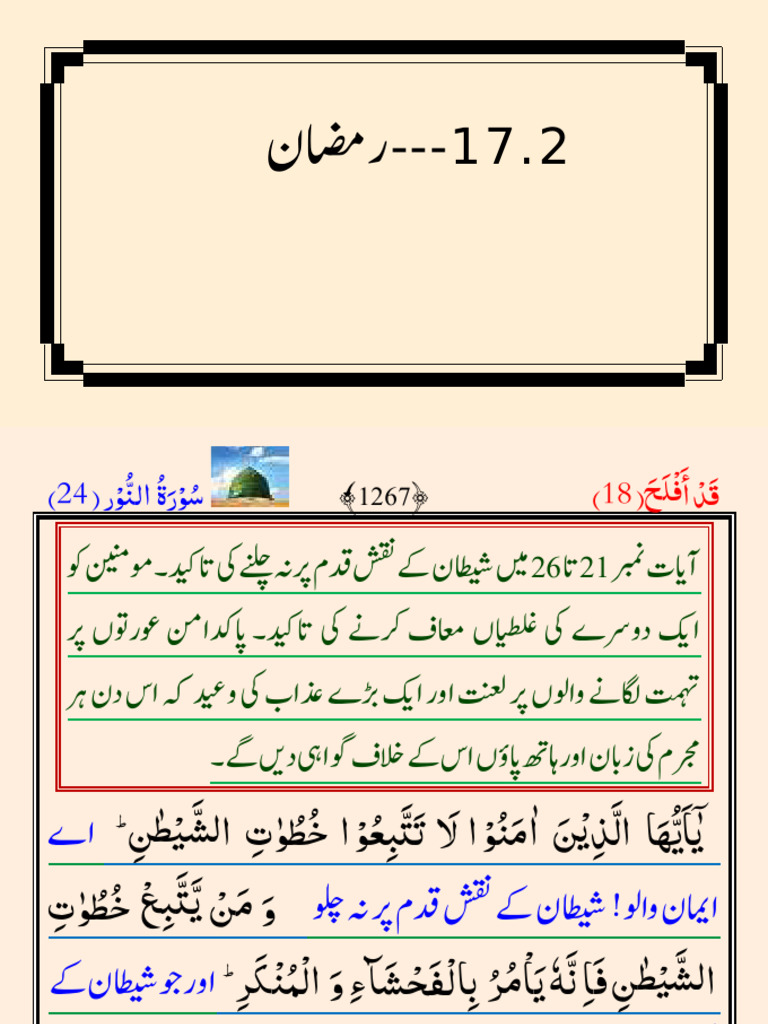 17.2---رمضان
قَدْ أَفْلَحَ(18) ﴿1267﴾ سُوْرَةُ النُّوْرِ (24)
آیات نمبر 21 تا26 میں شیطان کے نقش قدم پر نہ چلنے کی تاکید۔ مومنین کو
ایک دوسرے کی غلطیاں معاف کرنے کی تاکید۔ پاکدامن عورتوں پر
تہمت لگانے والوں پر لعنت اور ایک بڑے عذاب کی وعید کہ اس دن ہر
مجرم کی زبان اور ہاتھ پاؤں اس کے خلاف گواہی دیں گے۔
يٰۤاَيُّهَا الَّذِيْنَ اٰمَنُوْا لَا تَتَّبِعُوْا خُطُوٰتِ الشَّيْطٰنِ ؕ اے
ایمان والو! شیطان کے نقش قدم پر نہ چلو وَ مَنْ يَّتَّبِعْ خُطُوٰتِ
الشَّيْطٰنِ فَاِنَّهٗ يَاْمُرُ بِالْفَحْشَآءِ وَ الْمُنْكَرِ ؕ اور جو شیطان کے